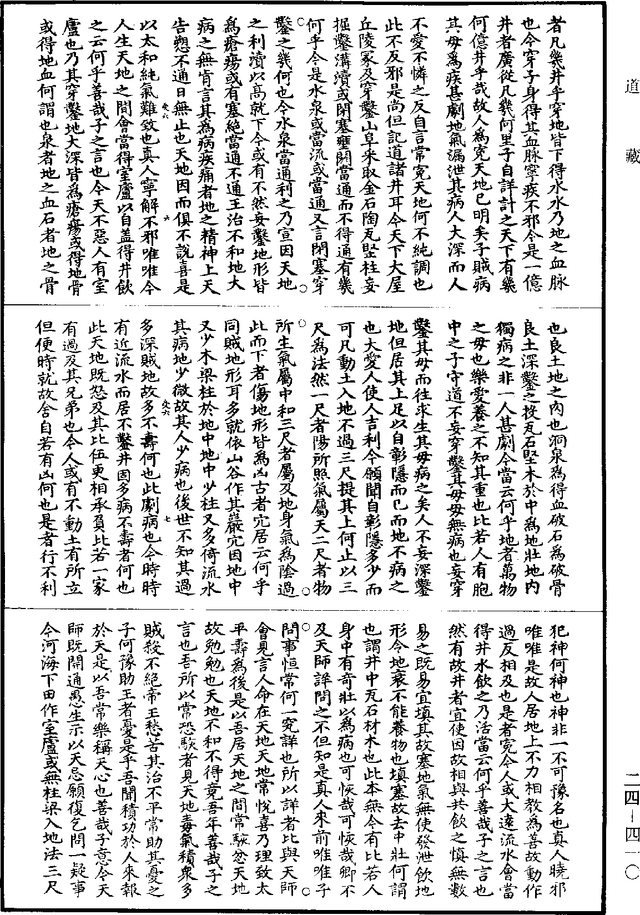 道藏
者凡幾井乎穿地皆下得水水乃地之血脉
也今穿子身得其血脉寧疾不邪今是一億
井者廣從凡幾何里子自詳計之天下有幾
何億井乎哉故人為冤天地已明矣子賊病
其母為疾甚劇地氣漏泄其病人大深而人
不愛不憐之反自言常冤天地何不純調也
此不反邪是尚但記道諸井耳今天下大屋
丘陵冢及穿鑿山阜采取金石陶瓦竪柱妄
掘鑿溝瀆或閉塞壅閼當通而不得通有幾
何乎今是水泉或當流或當通又言閉塞穿
鑿之幾何也今水泉當通利之乃宣因天地
之利瀆以高就下今或有不然妄鑿地形皆
為瘡瘍或有塞絕當通不通王治不和地大
病之無肯言其為病疾痛者地之精神上天
告愬不通日無止也天地因而俱不說喜是
六
以太和純氣難致也真人寧解不邪唯唯今
人生天地之間會當得室廬以自蓋得井飲
之云何乎善哉子之言也今天不惡人有室
廬也乃其穿鑿地大深皆為瘡瘍或得地骨
或得地血何謂也泉者地之血石者地之骨
也良土地之肉也洞泉為得血破石為破骨
良土深鑿之投瓦石堅木於中為地壯地內
獨病之非一人甚劇今當云何乎地者萬物
之母也樂愛養之不知其重也比若人有胞
中之子守道不妄穿鑿其母母無病也妄穿
鑿其母而往求生其母病之矣人不妄深鑿
地但居其上足以自彰隱而已而地不病之
也大愛人使人吉利今願聞自彰隱多少而
可凡動土入地不過三尺提其上何止以三
尺為法然一尺者陽所照氣屬天二尺者物
所生氣屬中和三尺者屬及地身氣為陰過
此而下者傷地形皆為凶古者穴居云何乎
同賊地形耳多就依山谷作其巖穴因地中
又少木梁柱於地中地中少柱又多倚流水
其病地少微故其人少病也後世不知其過
七
多深賊地故多不壽何也此劇病也今時時
有近流水而居不鑿井固多病不壽者何也
此天地既怒及其比伍更相承負比若一家
有過及其兄弟也今人或有不動土有所立
但便時就故舍自若有凶何也是者行不利
犯神何神也神非一不可豫名也真人曉邪
唯唯是故人居地上不力相教為善故動作
過反相及也是者冤今人或大遠流水會當
得井水飲之乃活當云何乎善哉子之言也
然有故井者宜使因故相與共飲之慎無數
易之既易宜填其故塞地氣無使發泄飲地
形令地衰不能養物也填塞故去中壯何謂
也謂井中瓦石材木也此本無今有比若人
身中有奇壯以為病也可恢哉可恢哉卿不
及天師詳問之不但知是真人來前唯唯子
問事恒常何一究詳也所以詳者比與天師
會見言人命在天地天地常悅喜乃理致太
平壽為後是以吾居天地之間常駭忿天地
故勉勉也天地不和不得竟吾年善哉子之
言也吾所以常恐駭者見天地毒氣積衆多
賊殺不絕帝王愁苦其治不平常助其憂之
子何豫助王者憂是乎吾聞積功於人來報
於天是以吾常樂稱天心也善哉子意今天
師既開通愚生示以天忌願復乞問一疑事
今河海下田作室廬或無柱梁入地法三尺
二四-四一〇